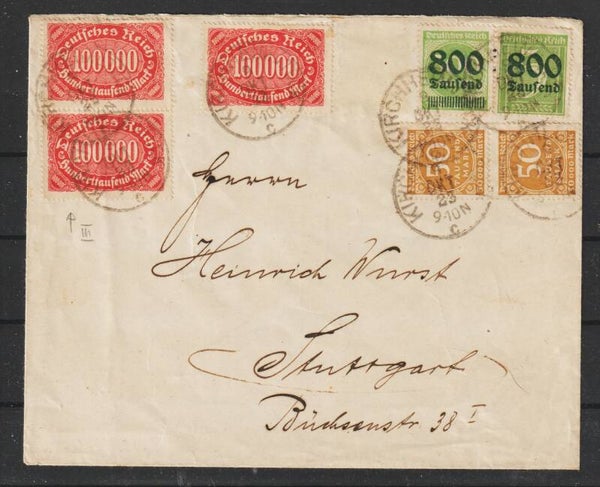 Deutsches Reich
100000
Hunderttausend Mark
Deutsches Reich
100000
Hunderttausend Mark
Deutsches Reich
100000
Hunderttausend Mark
Deutsches Reich
800
Tausend
Deutsches Reich
800
Tausend
50
TAUSEND
MARK
50
TAUSEND
MARK
KIRCHH
OKT
23
9-10N
c
9-10N
c
III
Herrn
Heinrich Wurst
Stuttgart
Büchsenstr. 38 I